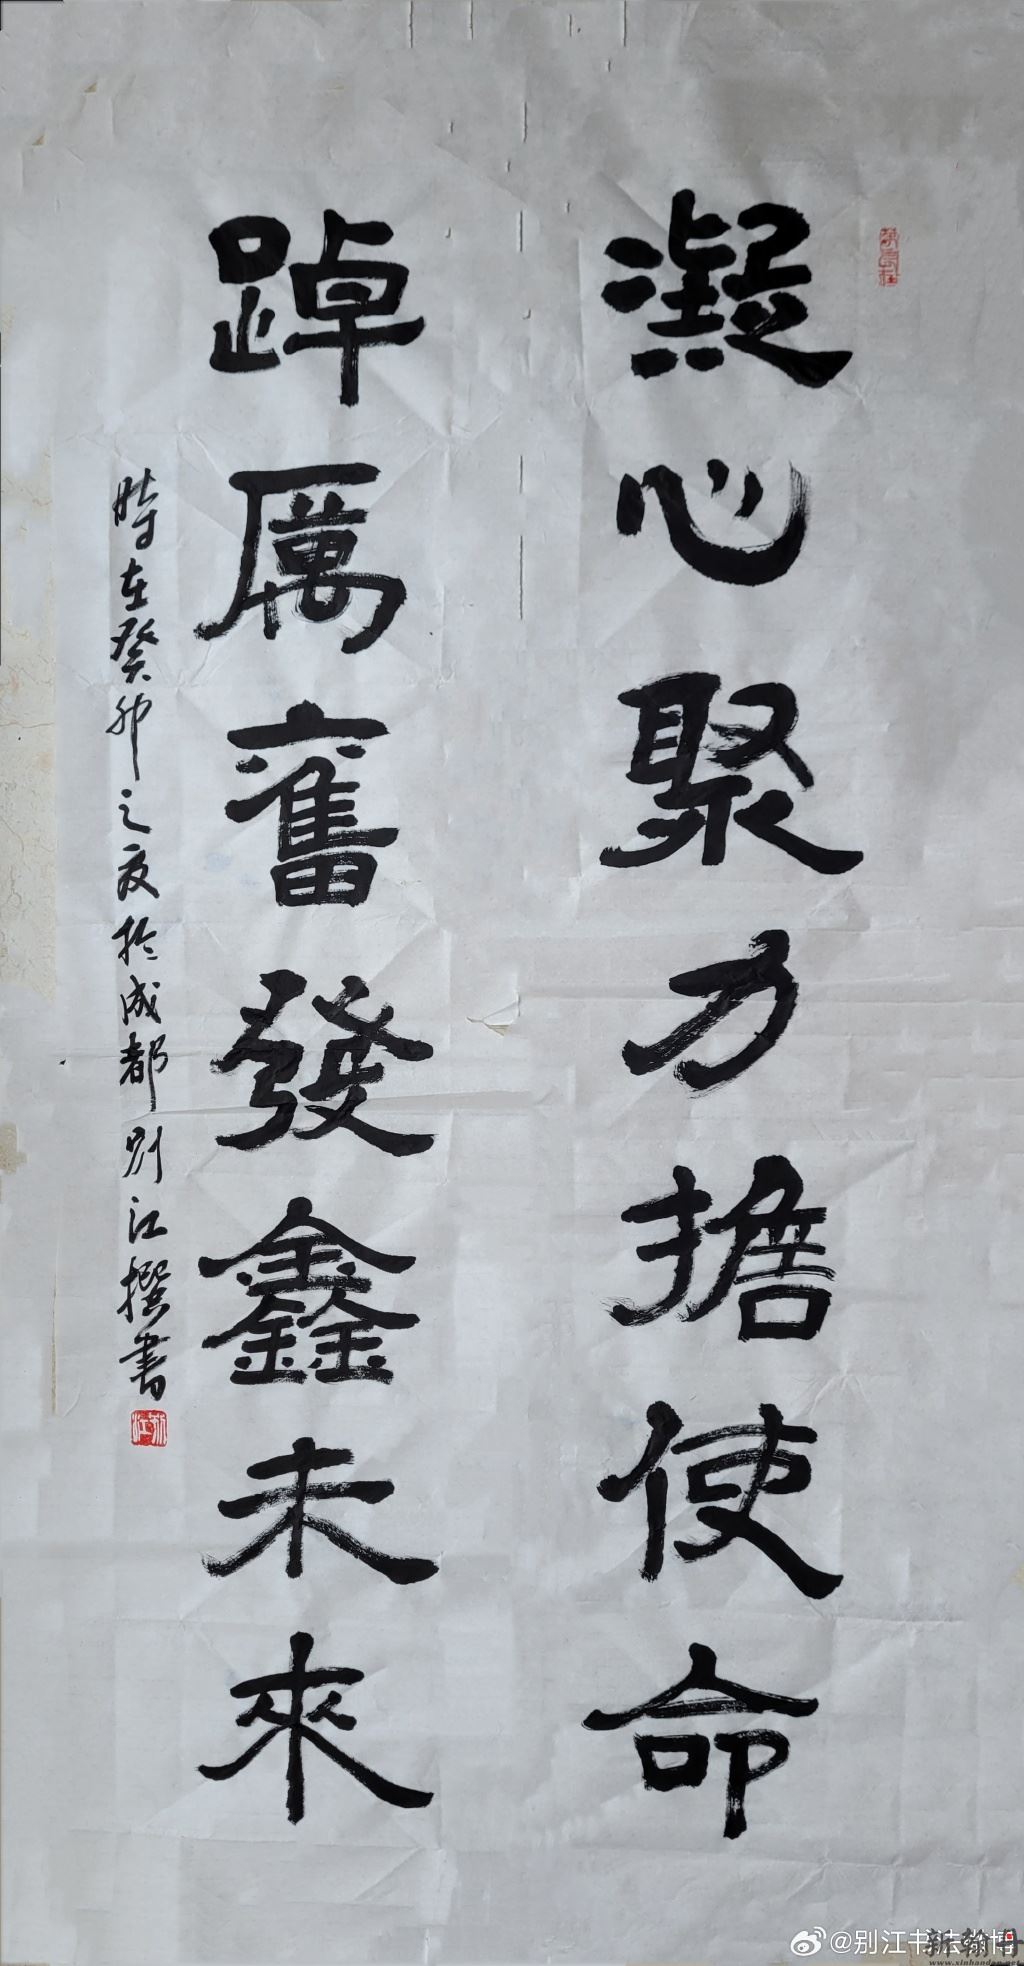 凝心聚力擔使命
踔厲奮發鑫未來
時在癸卯之夏於成都別江撰書
@别江书法翰博
新翰丹
www.xinhandan.net